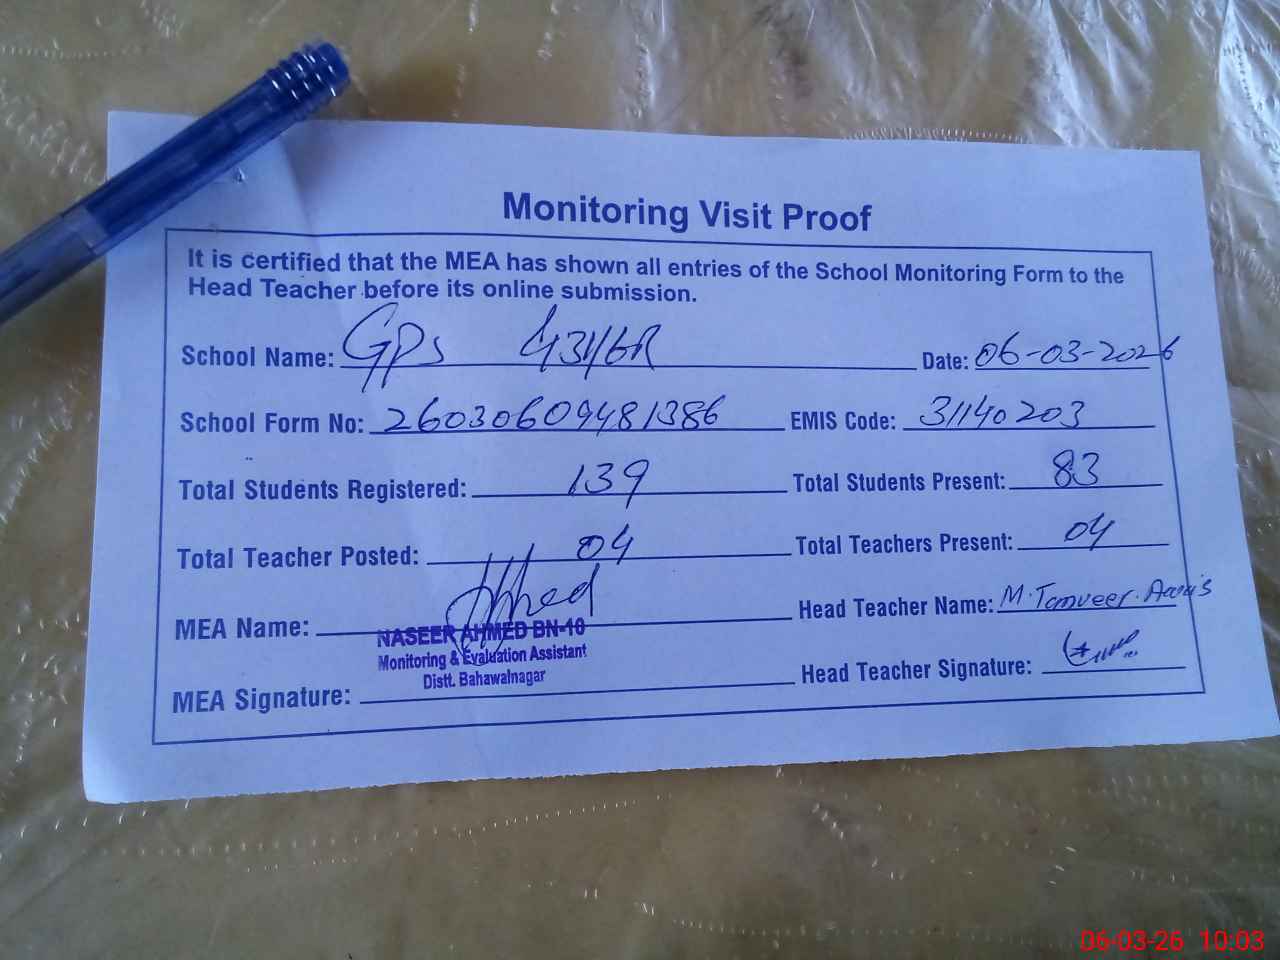 Monitoring Visit Proof
It is certified that the MEA has shown all entries of the School Monitoring Form to the
Head Teacher before its online submission.
School Name: GPS 431/6R Date: 06-03-2026
School Form No: 26030609481386 EMIS Code: 31140203
Total Students Registered: 139 Total Students Present: 83
Total Teacher Posted: 04 Total Teachers Present: 04
MEA Name: Head Teacher Name: M. Tanveer
NASEER AHMED BN-10
Monitoring & Evaluation Assistant
Distt. Bahawalnagar
MEA Signature: Head Teacher Signature:
06-03-26 10:03